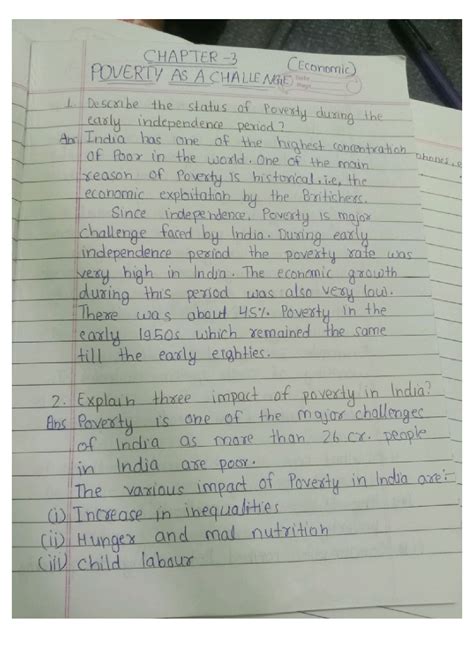 CHAPTER -3
(Economic)
POVERTY AS A CHALLENGE
1. Describe the status of Poverty during the
early independence period?
Ans India has one of the highest concentration
of Poor in the world. One of the main
reason of Poverty is historical, i.e, the
economic exploitation by the Britichers.
Since independence, Poverty is major
challenge faced by India. During early
independence period the poverty rate was
very high in India. The economic growth
during this period was also very low.
There was about 45% Poverty in the
early 1950s which remained the same
till the early eighties.
2. Explain three impact of poverty in India?
Ans Poverty is one of the major challenges
of India as more than 26 cr. people
in India are poor.
The various impact of Poverty in India are:-
(i) Increase in inequalities
(ii) Hunger and mal nutrition
(iii) child labour